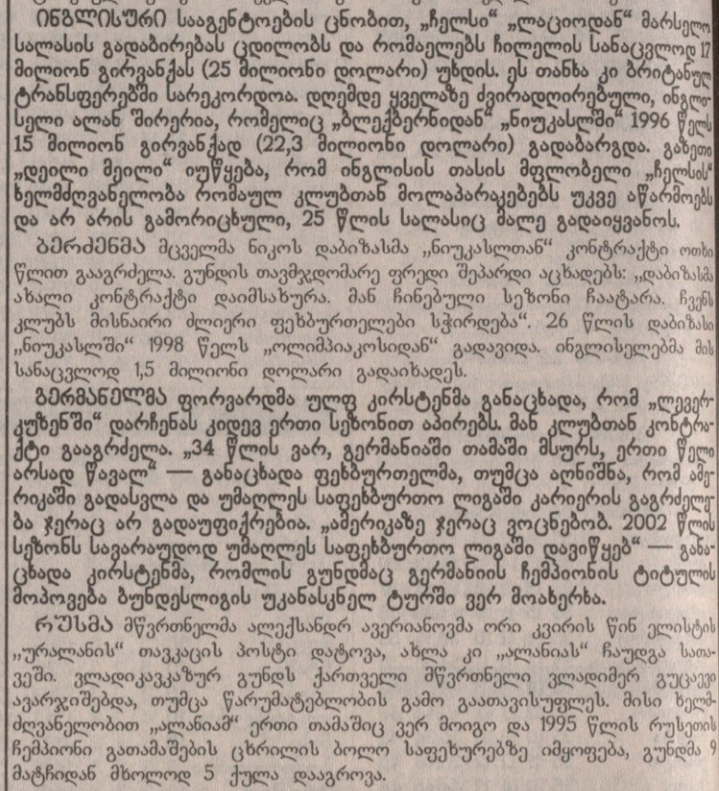 ინგლისური სააგენტოების ცნობით, „ჩელსი“ „ლაციოდან“ მარსელო
სალასის გადაბირებას ცდილობს და რომაელებს ჩილელის სანაცვლოდ 17
მილიონ გირვანქას (25 მილიონი დოლარი) უხდის. ეს თანხა კი ბრიტანულ
ტრანსფერებში სარეკორდოა. დღემდე ყველაზე ძვირადღირებული, ინგლი-
სელი ალან შირერია, რომელიც „ბლექბერნიდან“ „ნიუკასლში“ 1996 წელს
15 მილიონ გირვანქად (22,3 მილიონი დოლარი) გადაბარგდა. გაზეთი
„დეილი მეილი“ იუწყება, რომ ინგლისის თასის მფლობელი „ჩელსის“
ხელმძღვანელობა რომაულ კლუბთან მოლაპარაკებებს უკვე აწარმოებს
და არ არის გამორიცხული, 25 წლის სალასიც მალე გადაიყვანოს.
ბერძენმა მცველმა ნიკოს დაბიზასმა „ნიუკასლთან“ კონტრაქტი ოთხი
წლით გააგრძელა. გუნდის თავმჯდომარე ფრედი შეპარდი აცხადებს: „დაბიზასმა
ახალი კონტრაქტი დაიმსახურა. მან ჩინებული სეზონი ჩაატარა. ჩვენს
კლუბს მისნაირი ძლიერი ფეხბურთელები სჭირდება“. 26 წლის დაბიზასი
„ნიუკასლში“ 1998 წელს „ოლიმპიაკოსიდან“ გადავიდა. ინგლისელებმა მის
სანაცვლოდ 1,5 მილიონი დოლარი გადაიხადეს.
გერმანელმა ფორვარდმა ულფ კირსტენმა განაცხადა, რომ „ლევერ-
კუზენში“ დარჩენას კიდევ ერთი სეზონით აპირებს. მან კლუბთან კონტრა-
ქტი გააგრძელა. „34 წლის ვარ, გერმანიაში თამაში მსურს, ერთი წელი
არსად წავალ“ — განაცხადა ფეხბურთელმა, თუმცა აღნიშნა, რომ ამე-
რიკაში გადასვლა და უმაღლეს საფეხბურთო ლიგაში კარიერის გაგრძელე-
ბა ჯერაც არ გადაუფიქრებია. „ამერიკაზე ჯერაც ვოცნებობ. 2002 წლის
სეზონს სავარაუდოდ უმაღლეს საფეხბურთო ლიგაში დავიწყებ“ — განა-
ცხადა კირსტენმა, რომლის გუნდმაც გერმანიის ჩემპიონის ტიტულის
მოპოვება ბუნდესლიგის უკანასკნელ ტურში ვერ მოახერხა.
რუსმა მწვრთნელმა ალექსანდრ ავერიანოვმა ორი კვირის წინ ელისტის
„ურალანის“ თავკაცის პოსტი დატოვა, ახლა კი „ალანიას“ ჩაუდგა სათა-
ვეში. ვლადიკავკაზურ გუნდს ქართველი მწვრთნელი ვლადიმერ გუცაევი
ავარჯიშებდა, თუმცა წარუმატებლობის გამო გაათავისუფლეს. მისი ხელმ-
ძღვანელობით „ალანიამ“ ერთი თამაშიც ვერ მოიგო და 1995 წლის რუსეთის
ჩემპიონი გათამაშების ცხრილის ბოლო საფეხურებზე იმყოფება, გუნდმა 9
მატჩიდან მხოლოდ 5 ქულა დააგროვა.